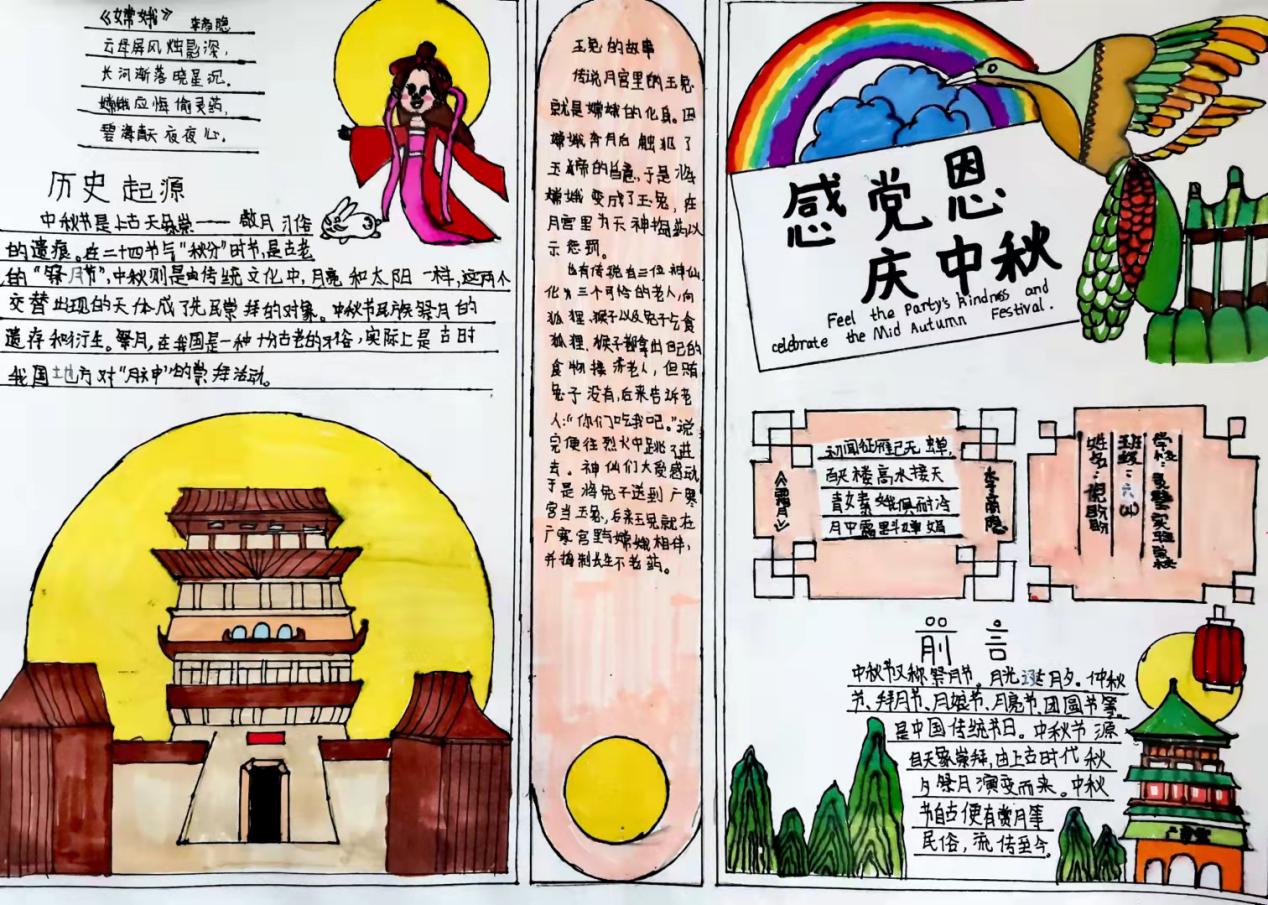 《嫦娥》 李商隐
云母屏风烛影深，
长河渐落晓星沉。
嫦娥应悔偷灵药，
碧海青天夜夜心。
历史起源
中秋节是上古天象崇——敬月习俗
的遗痕。在二十四节气"秋分"时节，是古老
的"祭月节"，中秋则是由传统文化中，月亮和太阳一样，这两个
交替出现的天体成了先民崇拜的对象。中秋节民族祭月的
遗存和衍生。祭月，在我国是一种十分古老的习俗，实际上是古时
我国地方对"月神"的崇拜活动。
玉兔的故事
传说月宫里的玉兔
就是嫦娥的化身。因
嫦娥奔月后触犯了
玉帝的旨意，于是将
嫦娥变成了玉兔，在
月宫里为天神捣药以
示惩罚。
也有传说有三位神仙
化为三个可怜的老人，向
狐狸、猴子以及兔子乞食
狐狸、猴子都拿出自己的
食物接济老人，但
兔子没有，后来告诉老
人："你们吃我吧。"说
完便往烈火中跳了进
去。神仙们大受感动
于是将兔子送到广寒
宫当玉兔，后来玉兔就在
广寒宫里与嫦娥相伴，
并捣制长生不老药。
感党恩
庆中秋
Feel the Party's kindness and
celebrate the Mid Autumn Festival.
《霜月》
初闻征雁已无蝉，
百尺楼高水接天
青女素娥俱耐冷
月中霜里斗婵娟
李商隐
学校：实验学校
班级：六
姓名：
前言
中秋节又称祭月节、月光诞、月夕、仲秋
节、拜月节、月娘节、月亮节、团圆节等，
是中国传统节日。中秋节源
自天象崇拜，由上古时代秋
夕祭月演变而来。中秋
节自古便有赏月等
民俗，流传至今。
广寒宫